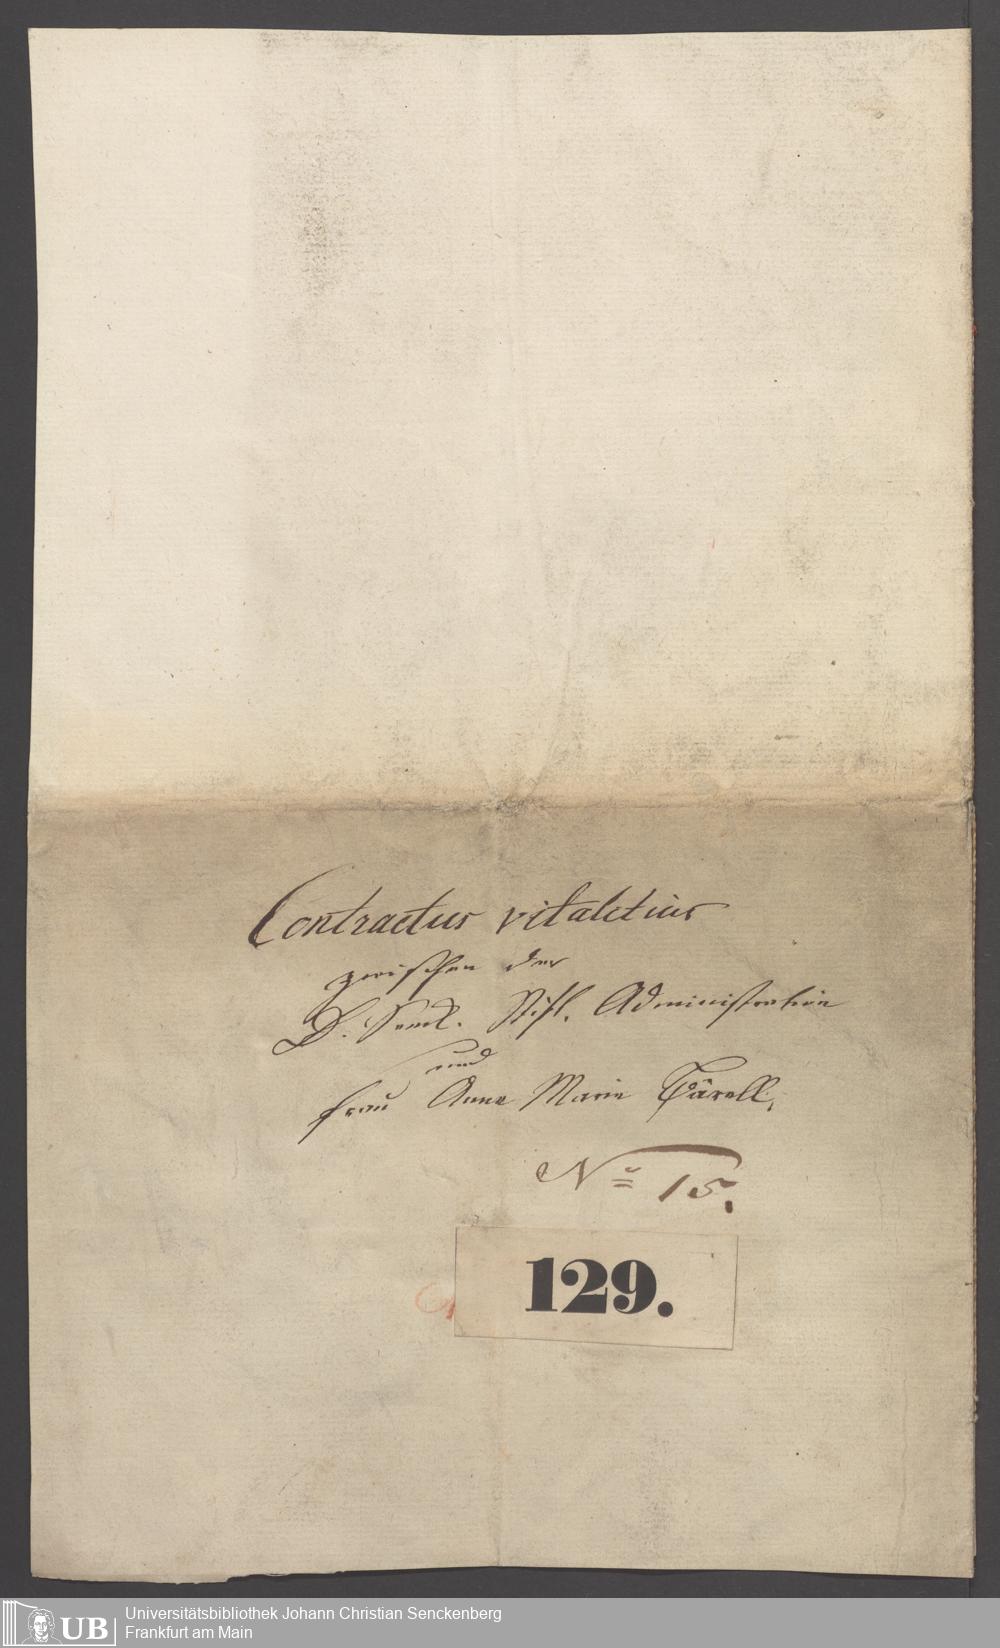 Contractus vitaletius
zwischen der
D. Senck. Stift. Administration
und
Frau Anna Maria Bärell.
No 15.
129.
UB
Universitätsbibliothek Johann Christian Senckenberg
Frankfurt am Main